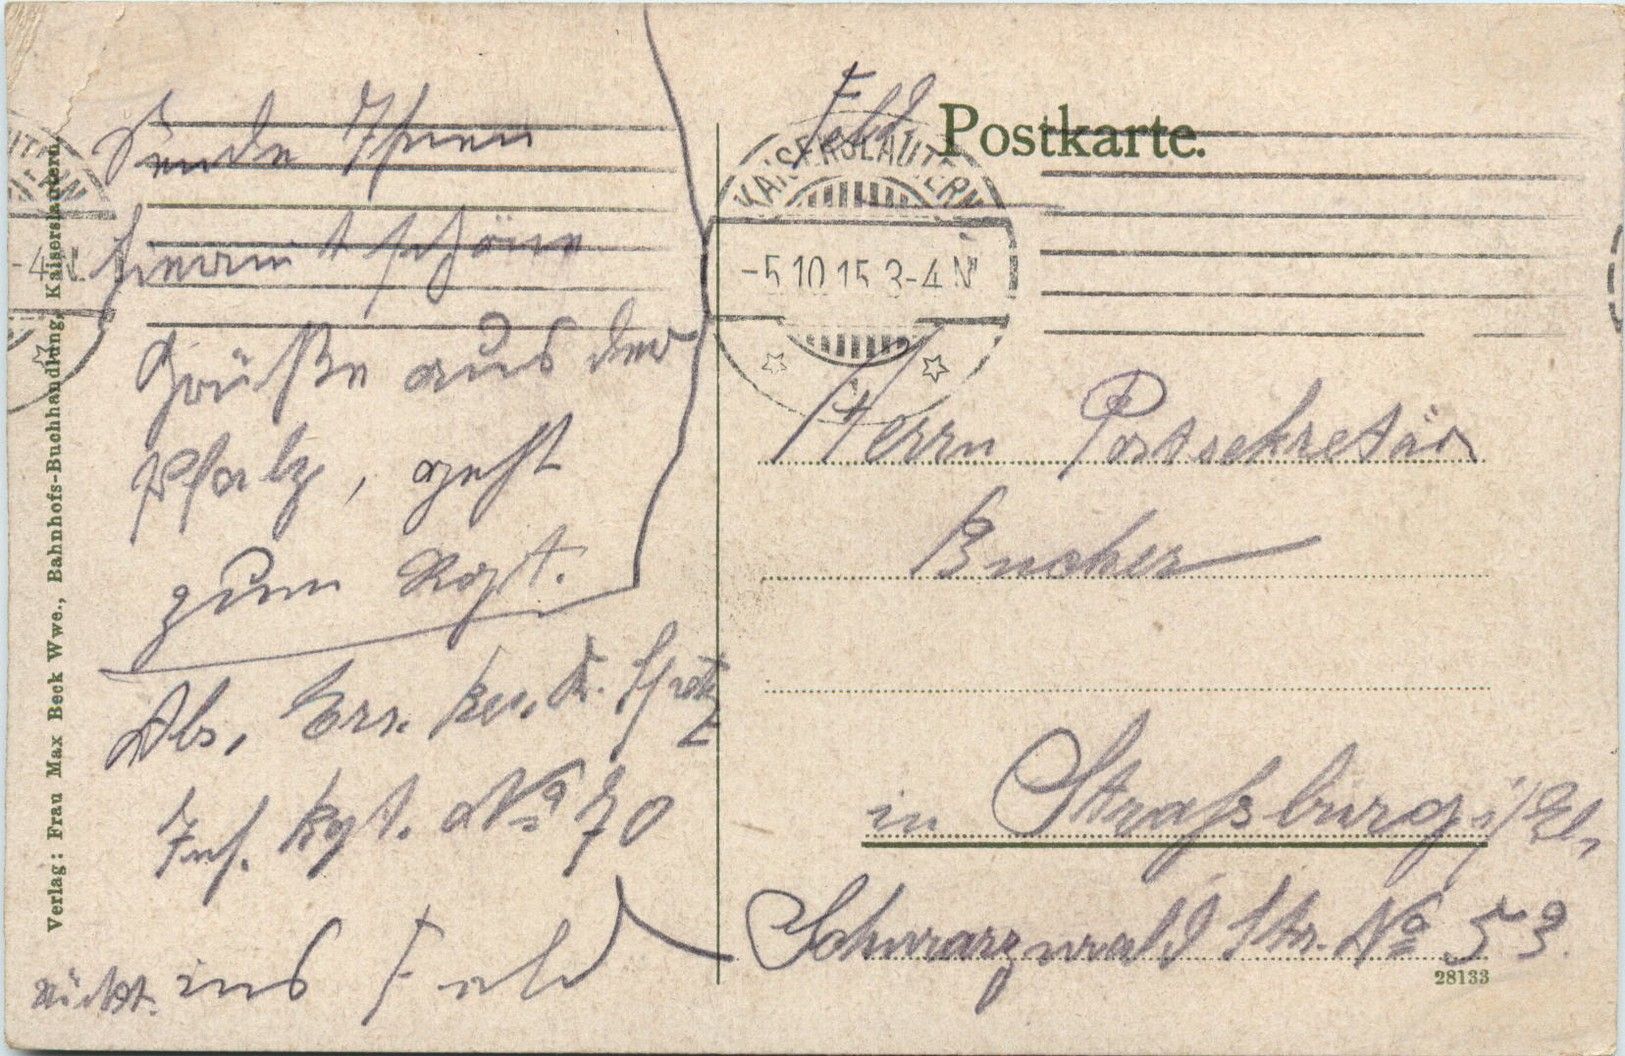 Sende Ihnen
hiermit schöne
Grüße aus der
Pfalz, geht
zum Rgt.
Abs. Ers. Res. K.
Inf. Rgt. No 70
rückt ins Feld
Verlag: Frau Max Beck Wwe., Bahnhofs-Buchhandlung, Kaiserslautern.
Feld
Postkarte.
KAISERSLAUTERN
-5.10.15.3-4 N
Herrn Postsekretär
Bucher
in Straßburg i/Els.
Schwarzwald Str. No 53.
28133